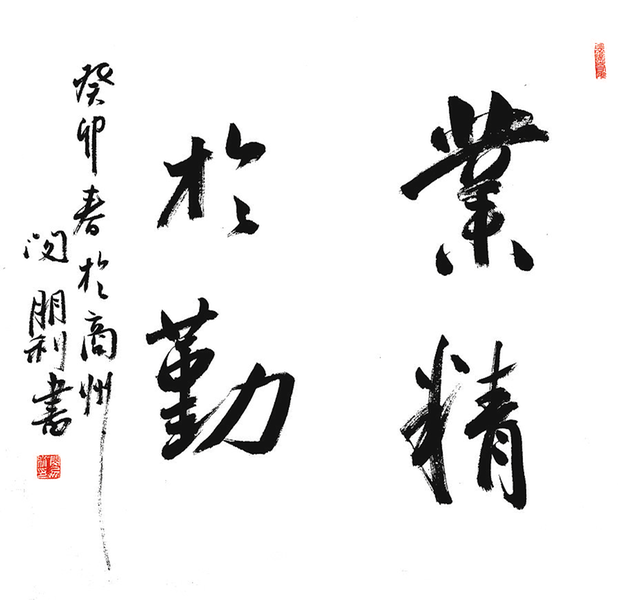 業精
於勤
癸卯春於商州
闵朋利書